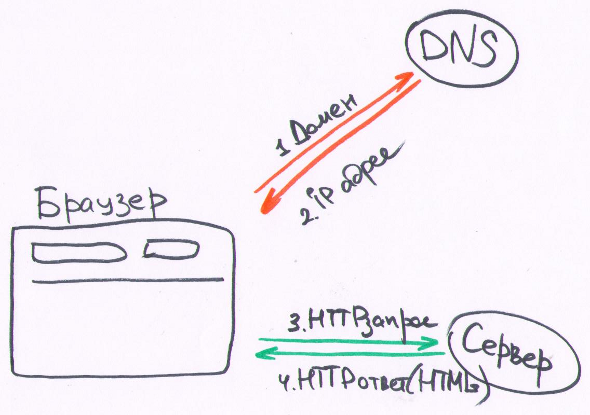 DNS
1 Домен
2. iP адрес
Браузер
3. HTTP запрос
Сервер
4. HTTP ответ (HTML)